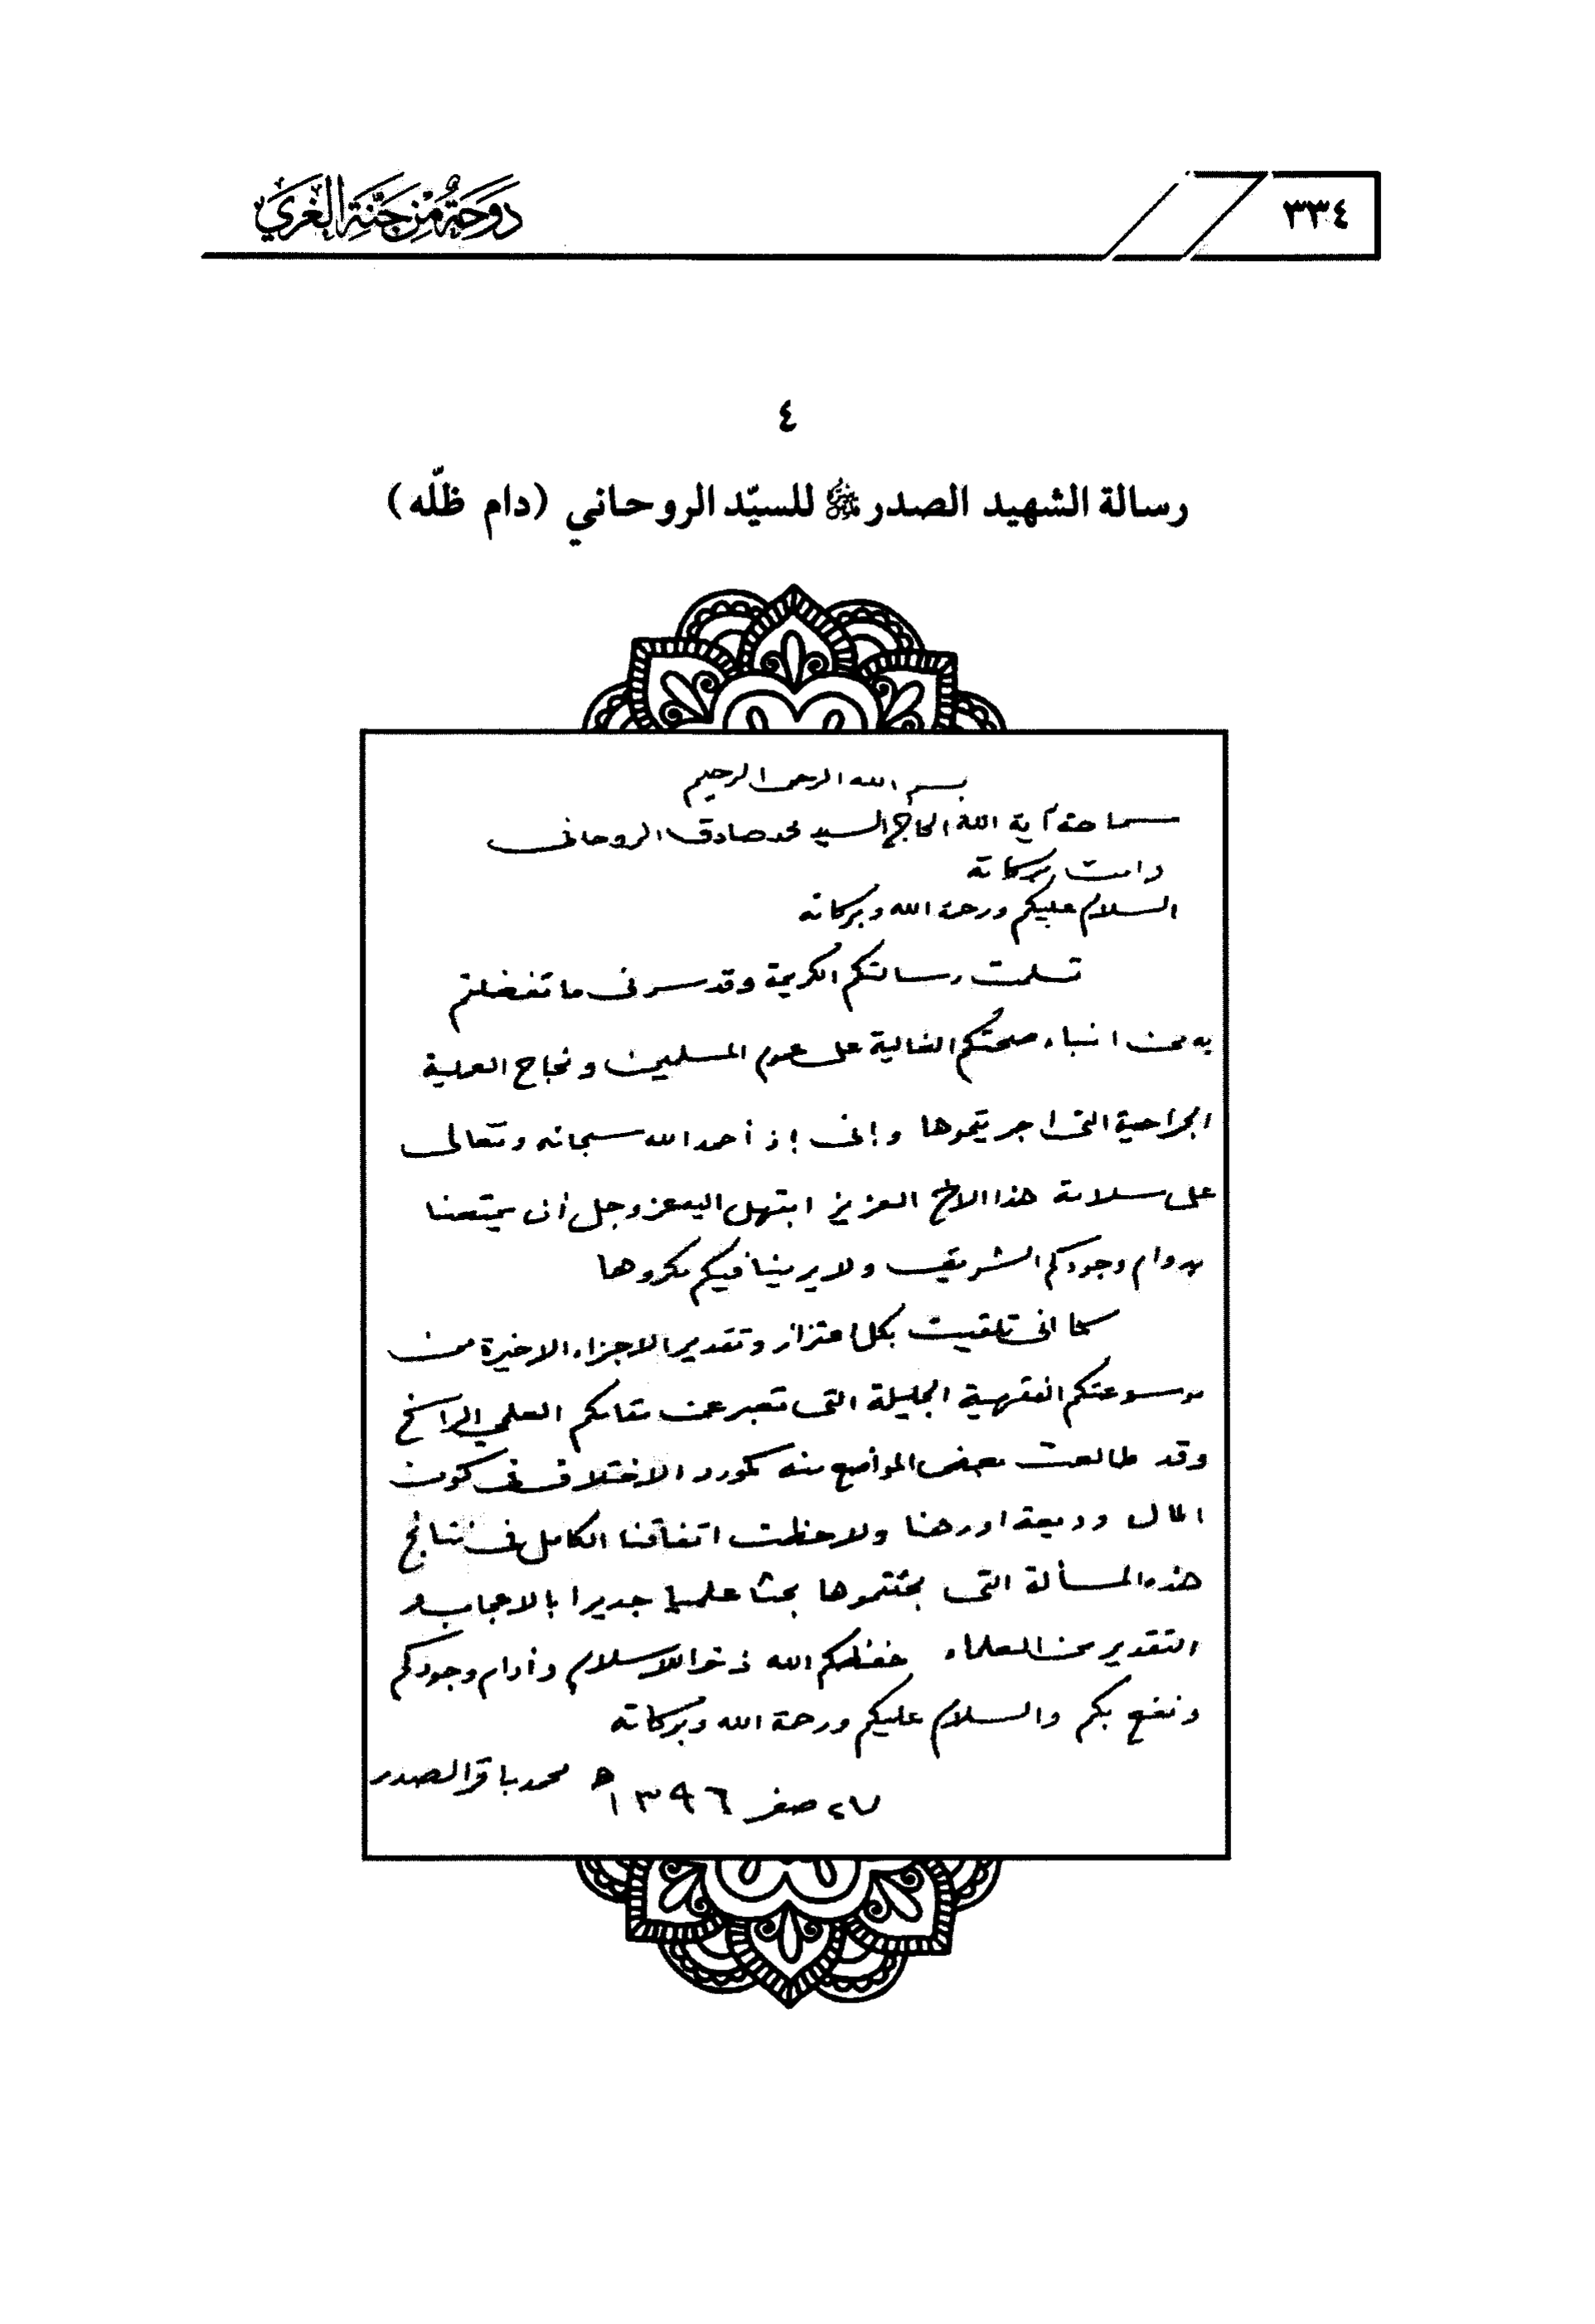 ٣٣٤
دَوحَةٌ مِنْ جَنَّةِ الغَريّ
٤
رسالة الشهيد الصدر للسيّد الروحاني (دام ظلّه)
بسم الله الرحمن الرحيم
سماحة آية الله الحاج السيد محمد صادق الروحاني
دامت بركاته
السلام عليكم ورحمة الله وبركاته
تسلمت رسالتكم الكريمة وقد سرني ما تفضلتم
به من انباء صحتكم الغالية على عموم المسلمين ونجاح العملية
الجراحية التي اجريتموها وإني إذ أحمد الله سبحانه وتعالى
على سلامة هذا الاخ العزيز ابتهل اليه عز وجل أن يمتعنا
بدوام وجودكم الشريف ولا يرينا فيكم مكروها
كما اني تلقيت بكل اعتزاز وتقدير الاجزاء الاخيرة من
موسوعتكم الفقهية الجليلة التي تعبر عن مقامكم العلمي الراسخ
وقد طالعت بعض المواضع منه كمورد الاختلاف في كون
المال وديعة او رهنا ولاحظت اتفاقنا الكامل في نتائج
هذه المسألة التي بحثتموها بحثا علميا جديرا بالاعجاب و
التقدير من العلماء حفظكم الله ذخرا للاسلام وأدام وجودكم
ونفع بكم والسلام عليكم ورحمة الله وبركاته
محمد باقر الصدر
٢٧ صفر ١٣٩٦ ه‍